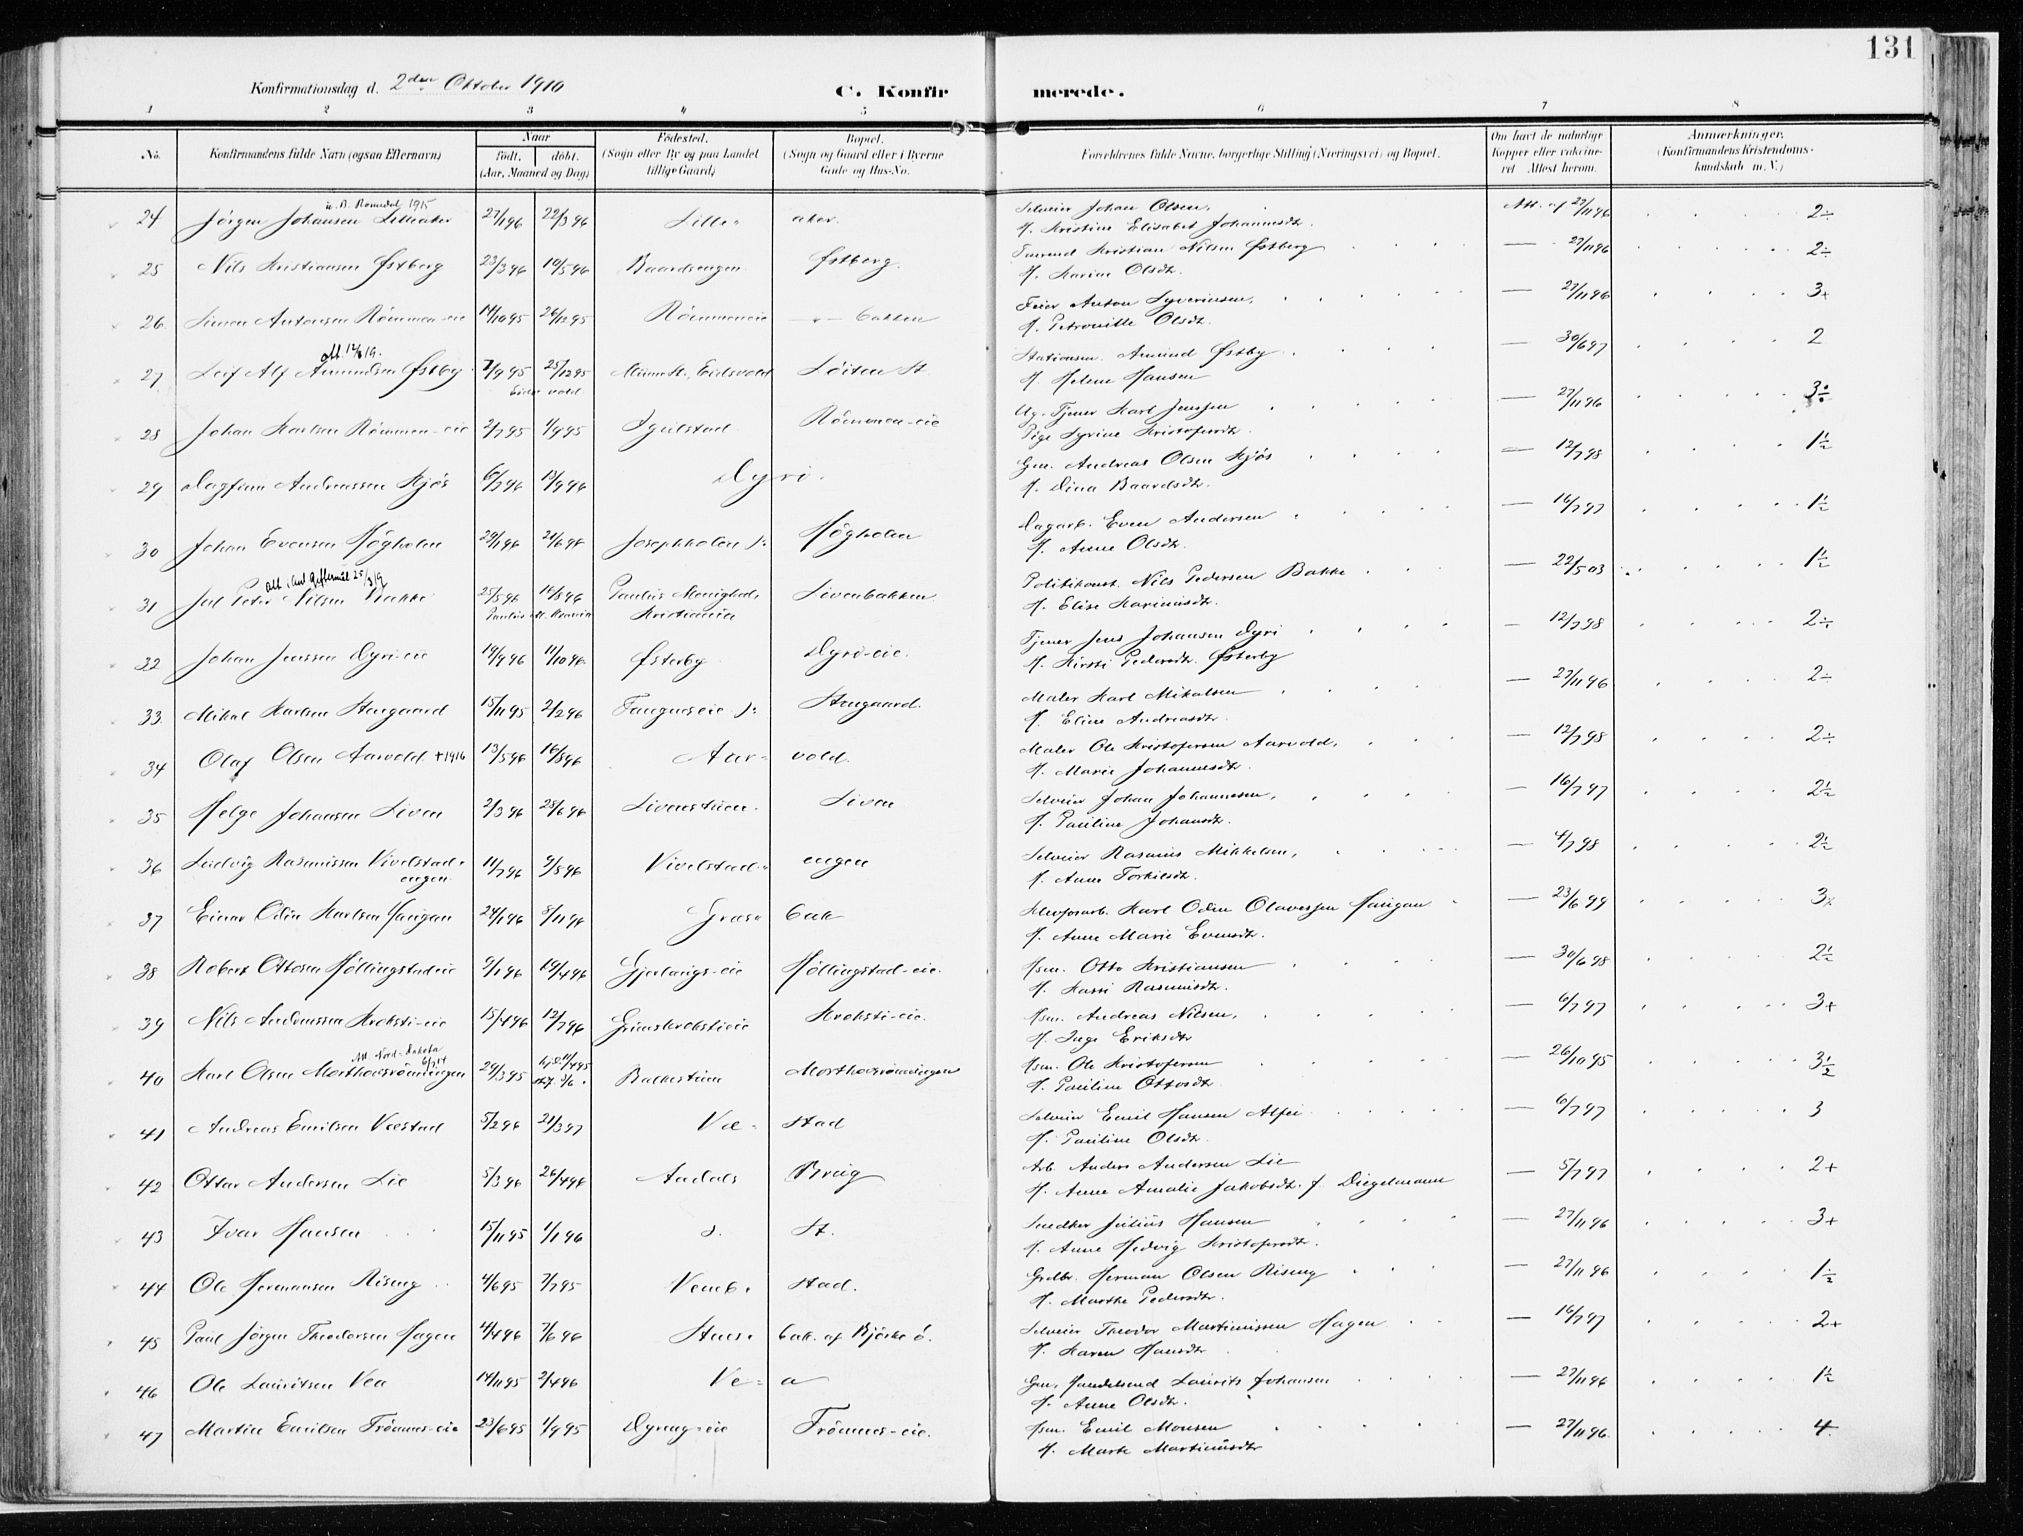 131
Konfirmationsdag d. 2den Oktober 1910
C. Konfirmerede.
1 2 3 4 5 6 7 8
No. Konfirmandens fulde Navn (ogsaa Efternavn) Naar født, døbt. (Aar, Maaned og Dag) Fødested. (Sogn eller By og paa Landet tillige Gaard) Bopæl. (Sogn og Gaard eller i Byerne Gade og Hus-No. Forældrenes fulde Navne, borgerlige Stilling (Næringsvei) og Bopæl. Om havt de naturlige Kopper eller vaccineret. Attest herom. Anmærkninger. (Konfirmandens Kristendomskundskab m. V.)
24 Jørgen Johansen Lilleaker 27/1 96 22/3 96 Lille- aker. Selveier Johan Olsen, Att. af 27/11 96 2÷
H. Kristine Elisabet Johannesdtr.
25 Nils Kristiansen Østberg 23/3 96 10/5 96 Baardsengen Østberg. Kristian Nilsen Østberg — 27/11 96 2÷
H. Karine Olsdtr.
26 Simen Antonsen Rømmen-eie 14/10 95 26/12 95 Rømmeneie —"— bakken Feier Anton Syverinsen, — 27/11 96 3+
H. Petronille Olsdtr.
att. 12/6 19.
27 Leif Alf Amundsen Østby 7/9 95 25/12 95 Minne St., Eidsvold Løiten St. Stationsm. Amund Østby — 30/6 97 2
Eidsvold
H. Helene Hansen
28 Johan Karlsen Rømmen-eie 2/7 95 1/9 95 Igulstad Rømmen-eie Ug. Tjener Karl Jenssen — 27/11 96 3÷
Pige Syrine Kristofersdtr.
29 Dagfinn Andreassen Kjøs 6/7 96 13/9 96 Dyri. Gm. Andreas Olsen Kjøs — 12/7 98 1½
H. Dina Baardsdtr.
30 Johan Evensen Høgholen 29/1 96 21/6 96 Josephholen Høgholen Dagarb. Even Andersen — 16/7 97 1½
H. Anne Olsdtr.
31 Peter Nilsen Bakke 25/5 96 14/8 96 Paulus Menighed, Kristiania Livenbakken Politikonst. Nils Pedersen Bakke — 22/5 03 1½
H. Elise Karinusdtr.
32 Johan Jenssen Dyri-eie 14/9 96 11/10 96 Østerby Dyri-eie. Tjener Jens Johansen Dyri — 12/7 98 2÷
H. Kirsti Pedersdtr. Østerby
33 Mikal Karlsen Stengaard 15/11 95 2/2 96 Fangneseie Stengaard. Maler Karl Mikalsen — 27/11 96 2÷
H. Eline Andreasdtr.
34 Olaf Olsen Aarvold +1916 13/5 96 16/8 96 Aar- vold. Maler Ole Kristofersen Aarvold, — 12/7 98 2÷
H. Marie Johannesdtr.
35 Helge Johansen Liven 2/3 96 28/6 96 Livenstuen Liven Selveier Johan Johannesen, — 16/7 97 2½
H. Pauline Johansdtr.
36 Ludvig Rasmussen Vivelstad-engen 11/7 96 9/8 96 Vivelstad- engen Selveier Rasmus Mikkelsen, — 4/7 98 2½
H. Anne Torkilsdtr.
37 Einar Odin Karlsen Haugan 24/1 96 8/11 96 Græs- bak Karl Odin Olavessen Haugan — 23/6 99 3
H. Anne Marie Evensdtr.
38 Robert Ottosen Høllingstadeie 9/1 96 19/4 96 Gjerlangs-eie Høllingstad-eie. Hsm. Otto Kristiansen — 30/6 98 2½
H. Kari Rasmusdtr.
39 Nils Andreassen Kroksti-eie 15/4 96 12/7 96 Grimskrokstieie Kroksti-eie. Hsm. Andreas Nilsen, — 6/7 97 3+
H. Inge Eriksdtr.
Att. Nord-Dakota 6/7 14
40 Karl Olsen Morthovsrønningen 29/3 95 Balkestuen Morthovsrønningen Hsm. Ole Kristofersen — 26/10 95 3½
H. Pauline Ottosdtr.
41 Andreas Emilsen Væstad 5/2 96 21/3 97 Væ- stad Selveier Emil Hansen Alfei — 6/7 97 3
H. Pauline Olsdtr.
42 Ottar Andersen Lie 5/3 96 26/4 96 Aadals Brug Arb. Anders Andersen Lie — 5/7 97 2+
H. Anne Amalie Jakobsdtr. f. Diegelmann
43 Ivar Hansen 15/11 95 1/1 96 s. St. Snedker Julius Hansen — 27/11 96 3+
H. Anne Hedvig Kristofersdtr.
44 Ole Hermansen Rising 4/6 95 7/7 95 Vemb- stad. Grdbr. Herman Olsen Rising — 27/11 96 1½
H. Marthe Pedersdtr.
45 Paul Jørgen Theodorsen Hagen 4/4 96 7/6 96 Stues- bak. af Bjørke ö. Selveier Theodor Martinussen Hagen — 16/7 97 2+
H. Karen Hansdtr.
46 Ole Lauritsen Vea 14/11 95 2/4 96 Ve- a Gm, Handelsmd Laurits Johansen — 27/11 96 1½
H. Anne Olsdtr.
47 Martin Emilsen Frønnes-eie 23/6 95 1/9 95 Dyreng-eie Frønnes-eie. Hsm. Emil Monsen — 27/11 96 4
H. Marte Martinusdtr